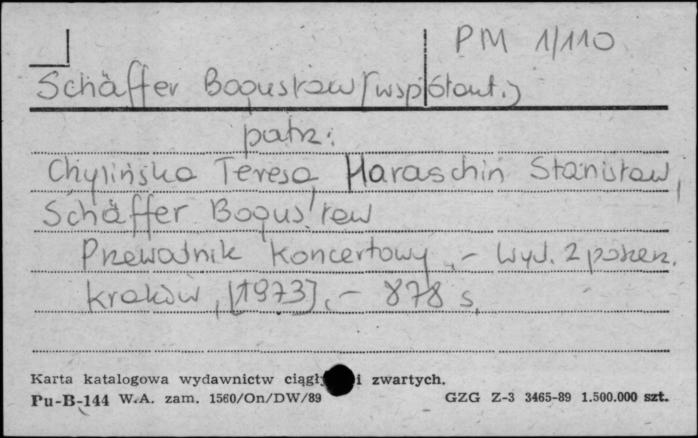 PM 1/110
Schäffer Bogusław (współaut.)
patrz:
Chylińska Teresa, Haraschin Stanisław,
Schäffer Bogusław
Przewodnik koncertowy. - Wyd. 2 poszerz.
Kraków, [1973]. - 878 s.
Karta katalogowa wydawnictw ciągły i zwartych.
Pu-B-144 W.A. zam. 1560/On/DW/89 GZG Z-3 3465-89 1.500.000 szt.